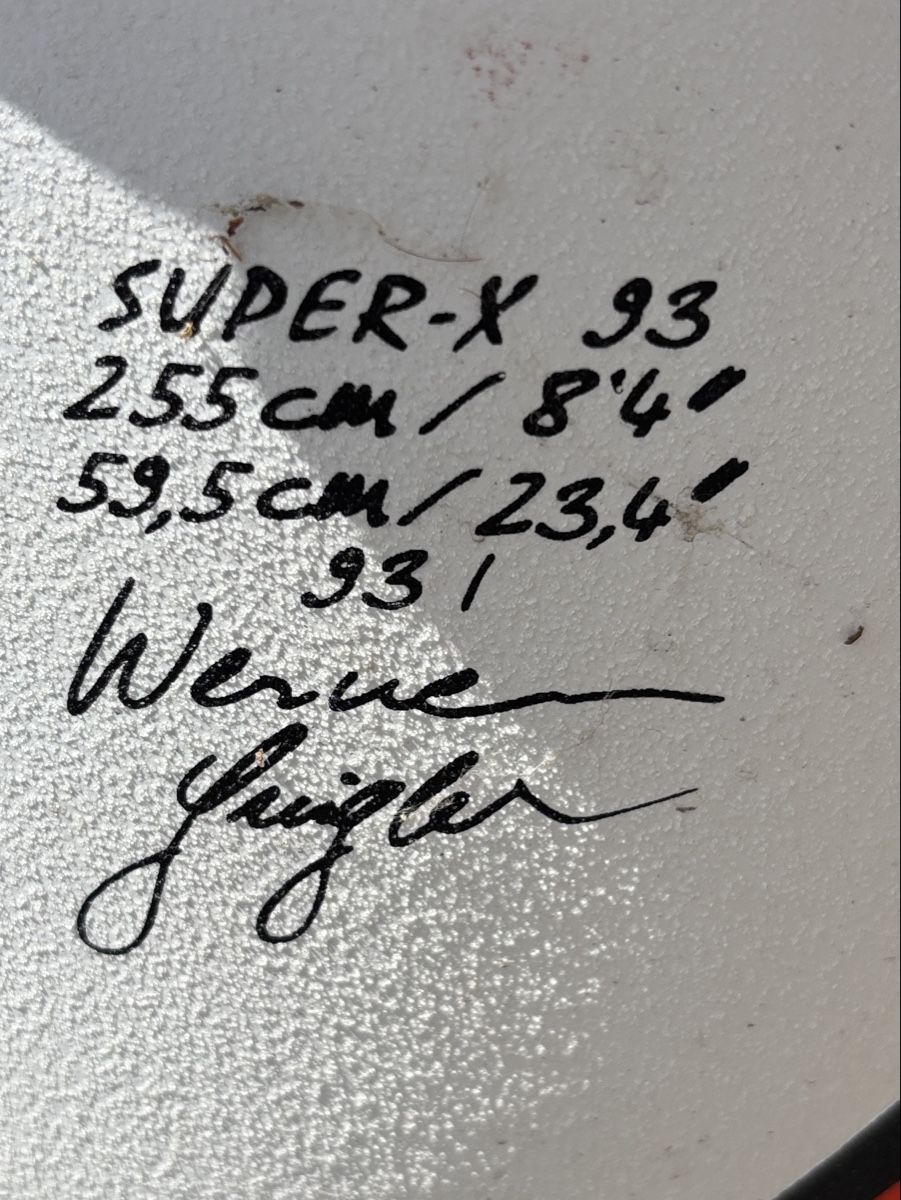 SUPER-X 93
255cm / 8'4"
59,5cm / 23,4"
93 l
Werner
Gnigler